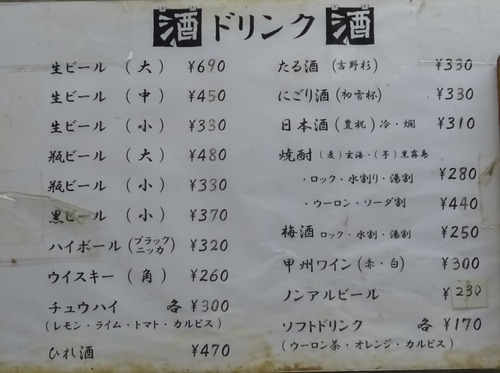 酒 ドリンク 酒
生ビール （大） ¥690
生ビール （中） ¥450
生ビール （小） ¥330
瓶ビール （大） ¥480
瓶ビール （小） ¥330
黒ビール （小） ¥370
ハイボール（ブラックニッカ） ¥320
ウイスキー （角） ¥260
チュウハイ 各 ¥300
（レモン・ライム・トマト・カルピス）
ひれ酒 ¥470
たる酒（吉野杉） ¥330
にごり酒（初雪杯） ¥330
日本酒（豊祝）冷・燗 ¥310
焼酎（麦）玄海・（芋）黒霧島
・ロック・水割り・湯割 ¥280
・ウーロン・ソーダ割 ¥440
梅酒 ロック・水割・湯割 ¥250
甲州ワイン（赤・白） ¥300
ノンアルビール ¥230
ソフトドリンク 各 ¥170
（ウーロン茶・オレンジ・カルピス）